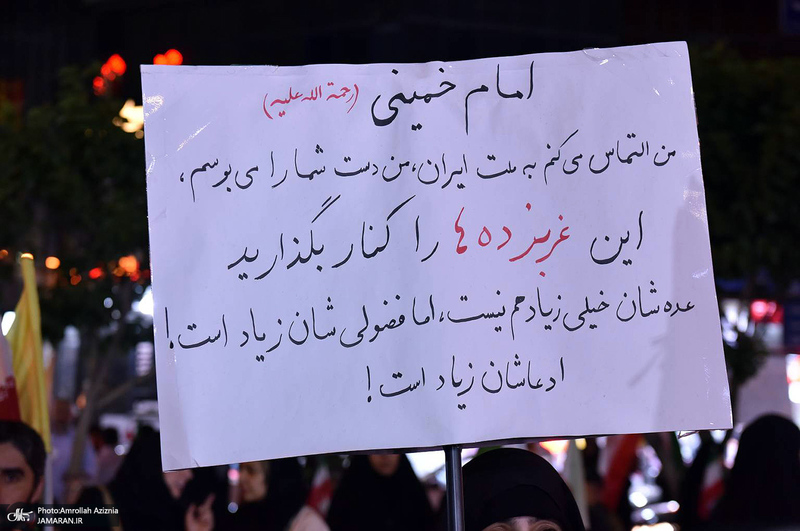 امام خمینی (رحمة الله علیه)
من التماس می‌کنم به ملت ایران، من دست شما را می‌بوسم،
این غربزده‌ها را کنار بگذارید
عده‌شان خیلی زیاد هم نیست، اما فضولی‌شان زیاد است!
ادعاشان زیاد است!
Photo:Amrollah Aziznia
JAMARAN.IR